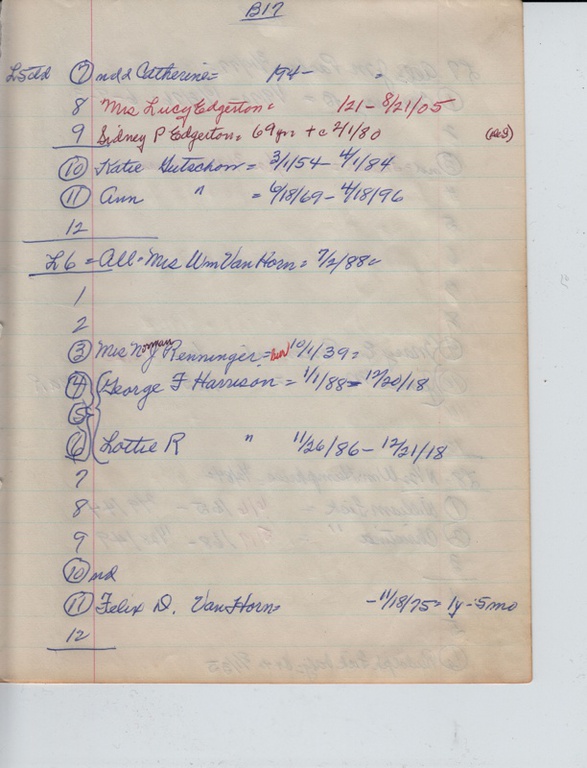 B17
L5 7 nd d Catherine = 194-
8 Mrs Lucy Edgerton = 121 - 8/21/05
9 Sidney P Edgerton = 69 yrs + c 2/1/80
10 Katie Gutschow = 3/1/54 - 4/1/84
11 Ann " = 6/18/69 - 4/18/96
12
L6 = All - Mrs Wm Van Horn = 7/2/88
1
2
3 Mrs Norman Renninger = bur 10/1/39 =
4 George F Harrison = 1/1/88 - 12/20/18
5
6 Lottie R " 11/26/86 - 12/21/18
7
8
9
10 nd
11 Felix D. Van Horn = - 11/18/75 = 1y - 5mo
12